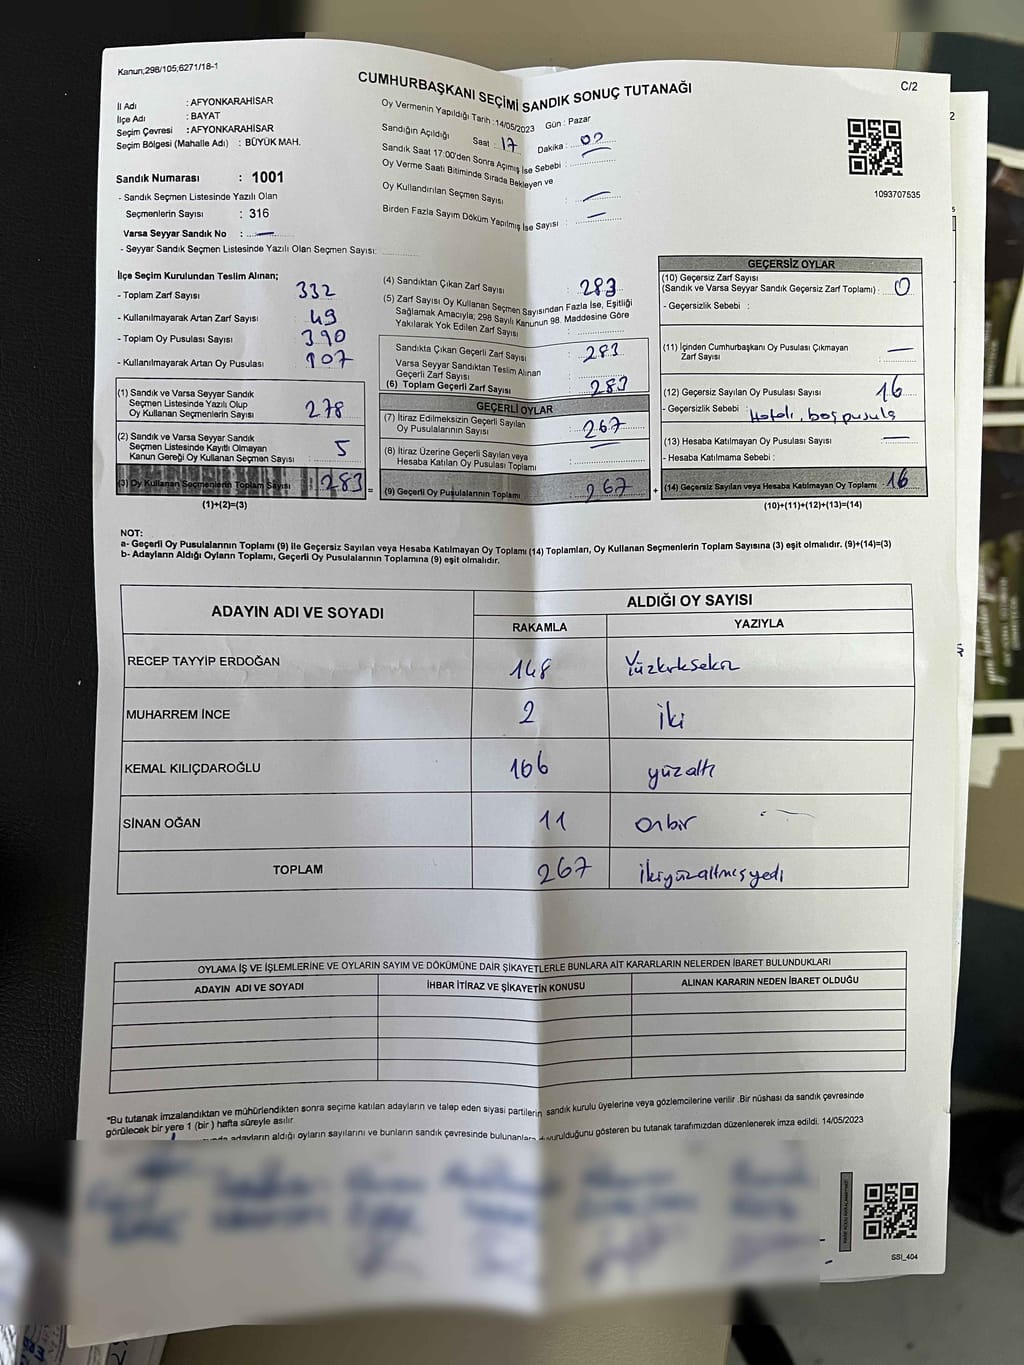 Kanun;298/105;6271/18-1
CUMHURBAŞKANI SEÇİMİ SANDIK SONUÇ TUTANAĞI
C/2
İl Adı : AFYONKARAHİSAR
İlçe Adı : BAYAT
Seçim Çevresi : AFYONKARAHİSAR
Seçim Bölgesi (Mahalle Adı) : BÜYÜK MAH.
Sandık Numarası : 1001
- Sandık Seçmen Listesinde Yazılı Olan
Seçmenlerin Sayısı : 316
Varsa Seyyar Sandık No : —
- Seyyar Sandık Seçmen Listesinde Yazılı Olan Seçmen Sayısı:
Oy Vermenin Yapıldığı Tarih :14/05/2023 Gün : Pazar
Sandığın Açıldığı Saat : 17 Dakika : 00
Sandık Saat 17:00'den Sonra Açımış İse Sebebi :
Oy Verme Saati Bitiminde Sırada Bekleyen ve
Oy Kullandırılan Seçmen Sayısı : —
Birden Fazla Sayım Döküm Yapılmış İse Sayısı : —
1093707535
İlçe Seçim Kurulundan Teslim Alınan;
- Toplam Zarf Sayısı 332
- Kullanılmayarak Artan Zarf Sayısı : 49
- Toplam Oy Pusulası Sayısı : 390
- Kullanılmayarak Artan Oy Pusulası : 107
(1) Sandık ve Varsa Seyyar Sandık
Seçmen Listesinde Yazılı Olup
Oy Kullanan Seçmenlerin Sayısı : 278
(2) Sandık ve Varsa Seyyar Sandık
Seçmen Listesinde Kayıtlı Olmayan
Kanun Gereği Oy Kullanan Seçmen Sayısı : 5
(3) Oy Kullanan Seçmenlerin Toplam Sayısı : 283
(1)+(2)=(3)
(4) Sandıktan Çıkan Zarf Sayısı : 283
(5) Zarf Sayısı Oy Kullanan Seçmen Sayısından Fazla İse, Eşitliği
Sağlamak Amacıyla; 298 Sayılı Kanunun 98. Maddesine Göre
Yakılarak Yok Edilen Zarf Sayısı :
Sandıkta Çıkan Geçerli Zarf Sayısı : 283
Varsa Seyyar Sandıktan Teslim Alınan
Geçerli Zarf Sayısı :
(6) Toplam Geçerli Zarf Sayısı : 283
GEÇERLİ OYLAR
(7) İtiraz Edilmeksizin Geçerli Sayılan
Oy Pusulalarının Sayısı : 267
(8) İtiraz Üzerine Geçerli Sayılan veya
Hesaba Katılan Oy Pusulası Toplamı :
= (9) Geçerli Oy Pusulalarının Toplamı : 267
GEÇERSİZ OYLAR
(10) Geçersiz Zarf Sayısı
(Sandık ve Varsa Seyyar Sandık Geçersiz Zarf Toplamı) : 0
- Geçersizlik Sebebi :
(11) İçinden Cumhurbaşkanı Oy Pusulası Çıkmayan
Zarf Sayısı : —
(12) Geçersiz Sayılan Oy Pusulası Sayısı : 16
- Geçersizlik Sebebi : Hatalı, boş pusula
(13) Hesaba Katılmayan Oy Pusulası Sayısı : —
- Hesaba Katılmama Sebebi :
+ (14) Geçersiz Sayılan veya Hesaba Katılmayan Oy Toplamı : 16
(10)+(11)+(12)+(13)=(14)
NOT:
a- Geçerli Oy Pusulalarının Toplamı (9) ile Geçersiz Sayılan veya Hesaba Katılmayan Oy Toplamı (14) Toplamları, Oy Kullanan Seçmenlerin Toplam Sayısına (3) eşit olmalıdır. (9)+(14)=(3)
b- Adayların Aldığı Oyların Toplamı, Geçerli Oy Pusulalarının Toplamına (9) eşit olmalıdır.
ADAYIN ADI VE SOYADI
ALDIĞI OY SAYISI
RAKAMLA YAZIYLA
RECEP TAYYİP ERDOĞAN 148 Yüzkırksekiz
MUHARREM İNCE 2 iki
KEMAL KILIÇDAROĞLU 106 yüzaltı
SİNAN OĞAN 11 Onbir
TOPLAM 267 ikiyüzaltmışyedi
OYLAMA İŞ VE İŞLEMLERİNE VE OYLARIN SAYIM VE DÖKÜMÜNE DAİR ŞİKAYETLERLE BUNLARA AİT KARARLARIN NELERDEN İBARET BULUNDUKLARI
ADAYIN ADI VE SOYADI İHBAR İTİRAZ VE ŞİKAYETİN KONUSU ALINAN KARARIN NEDEN İBARET OLDUĞU
*Bu tutanak imzalandıktan ve mühürlendikten sonra seçime katılan adayların ve talep eden siyasi partilerin sandık kurulu üyelerine veya gözlemcilerine verilir .Bir nüshası da sandık çevresinde
görülecek bir yere 1 (bir) hafta süreyle asılır.
adayların aldığı oyların sayılarını ve bunların sandık çevresinde bulunanlara duyurulduğunu gösteren bu tutanak tarafımızdan düzenlenerek imza edildi. 14/05/2023
SSI_404